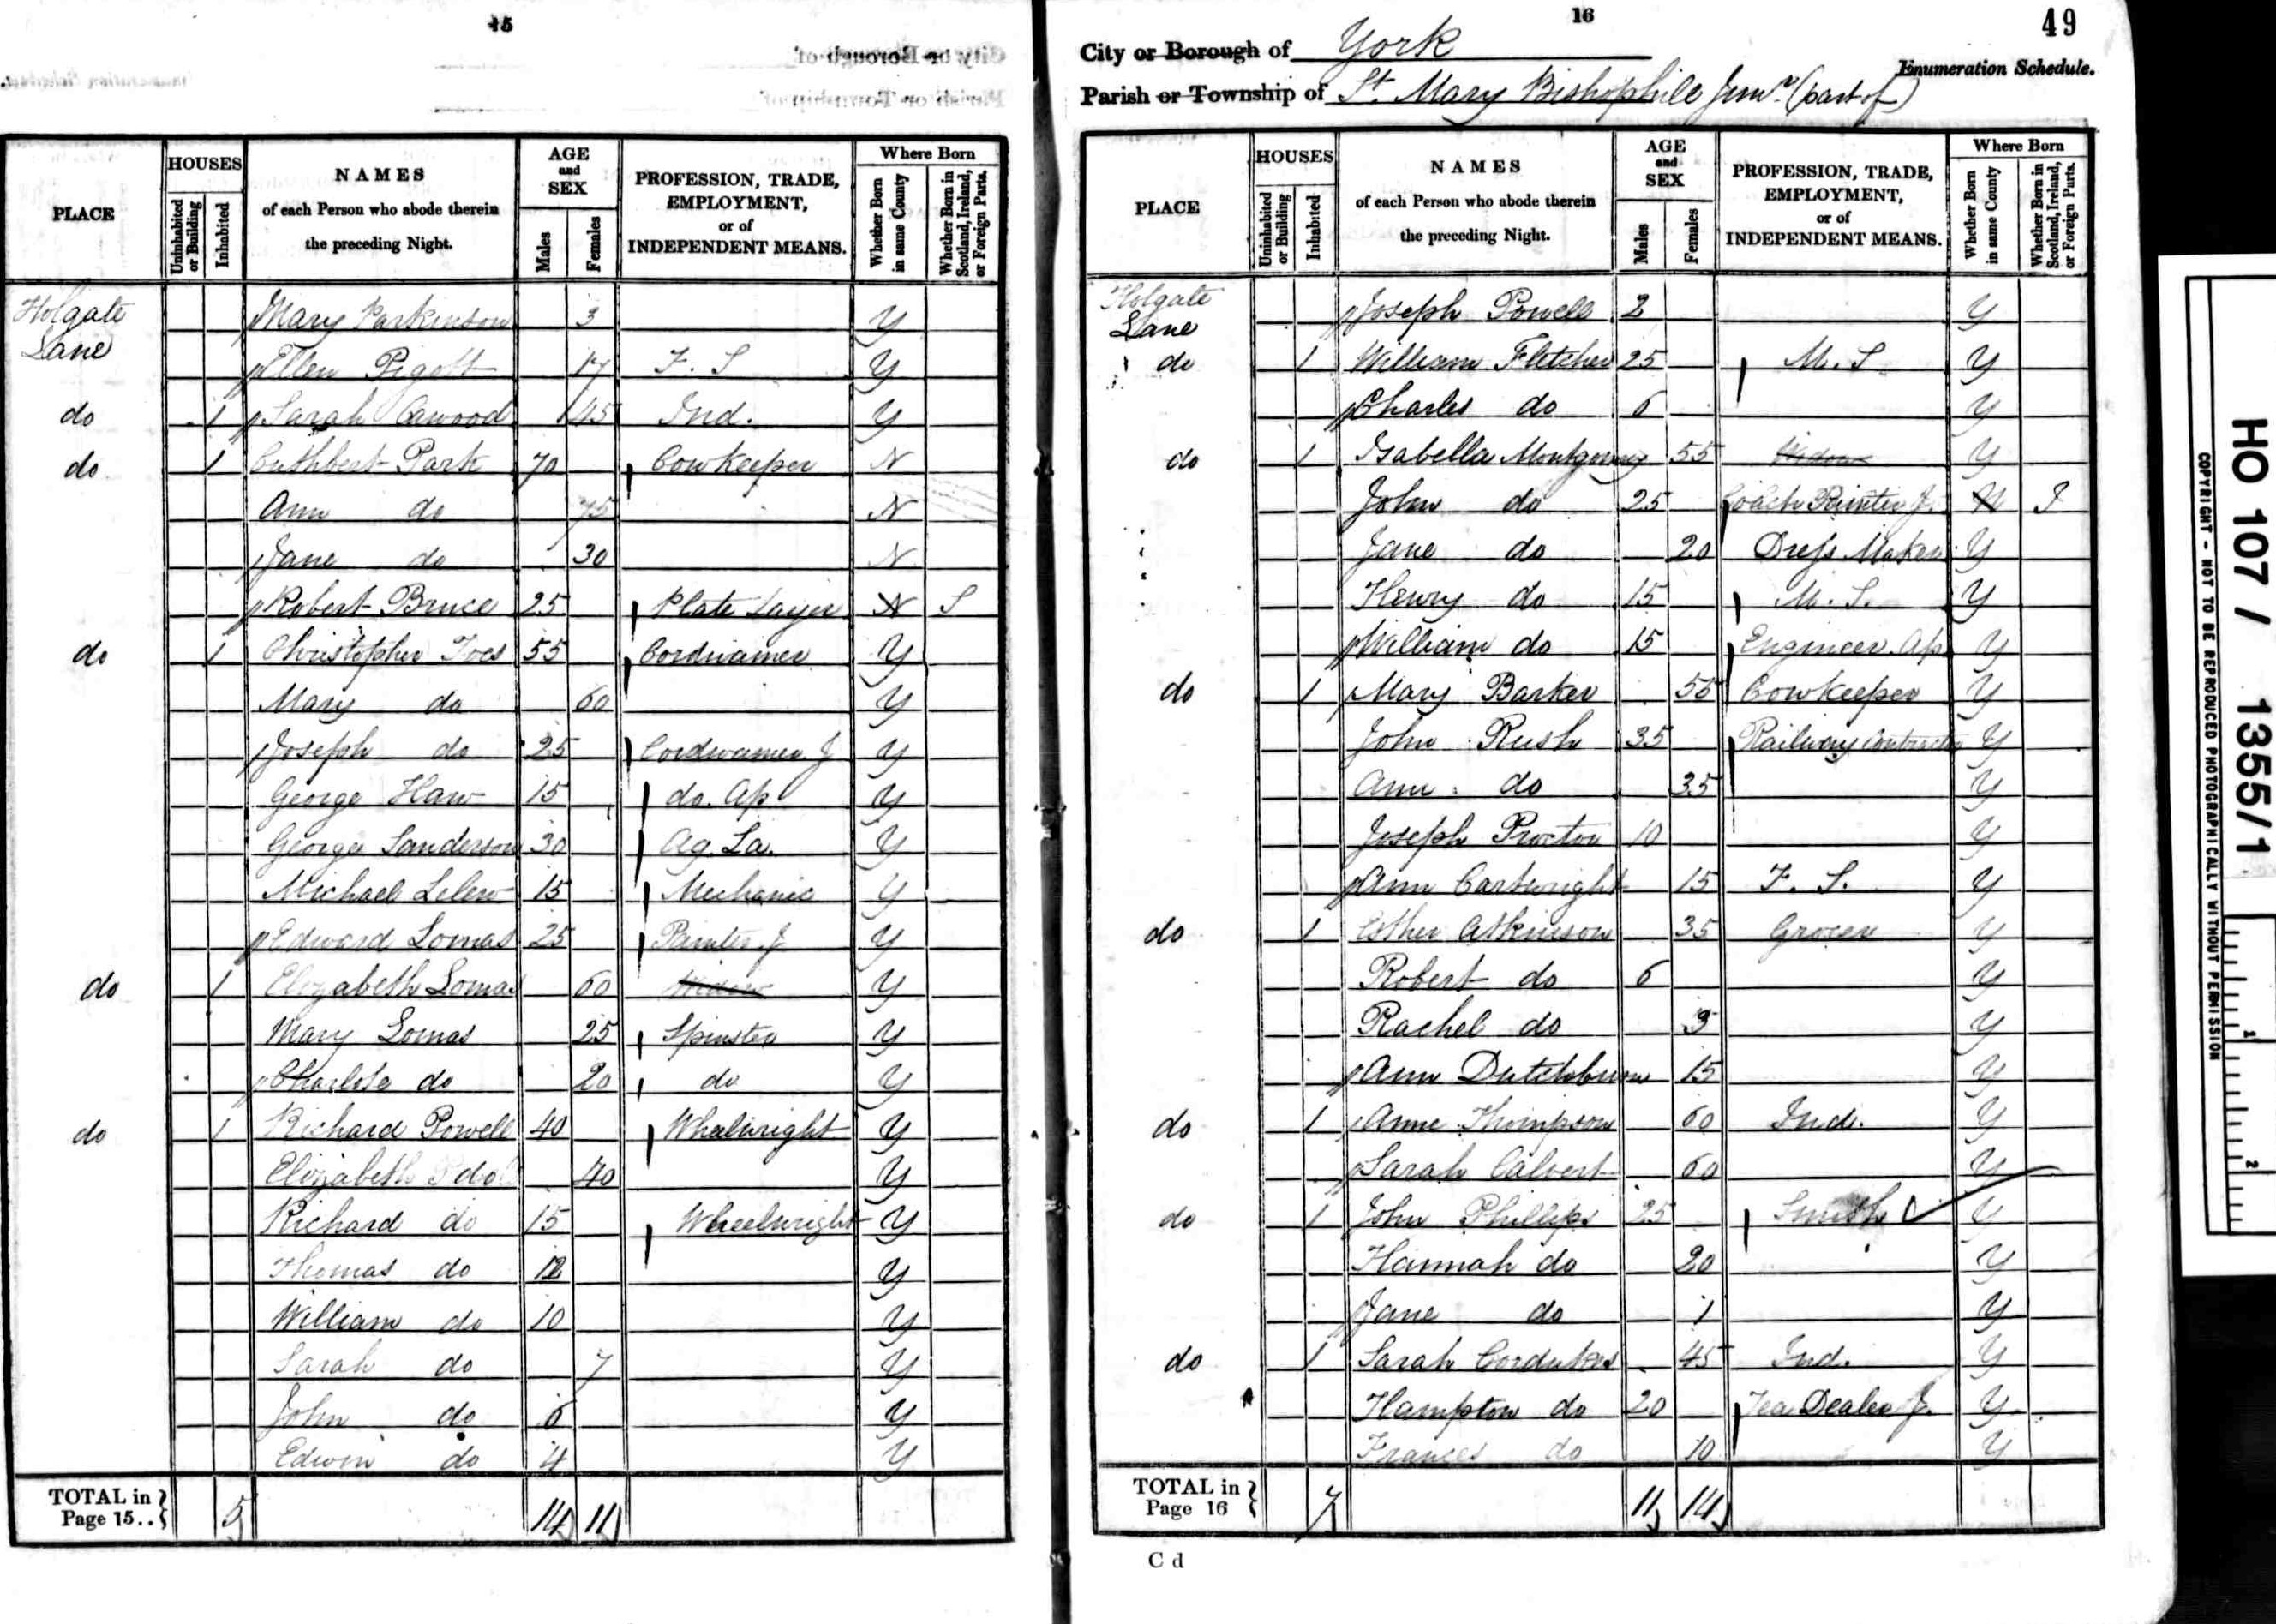 15
HOUSES
NAMES
of each Person who abode therein
the preceding Night.
AGE
and
SEX
PROFESSION, TRADE,
EMPLOYMENT,
or of
INDEPENDENT MEANS.
Where Born
PLACE
Uninhabited or Building
Inhabited
Males
Females
Whether Born in same County
Whether Born in Scotland, Ireland, or Foreign Parts.
Holgate Mary Parkinson 3 Y
Lane Ellen Pigott 17 F. S Y
do 1 Sarah Cawood 45 Ind. Y
do 1 Cuthbert Park 70 Cowkeeper N
Ann do 75 N
Jane do 30 N
Robert Bruce 25 Plate Layer N S
do 1 Christopher 55 Cordwainer Y
Mary do 60 Y
Joseph do 25 Cordwainer J Y
George Haw 15 do. Ap Y
George Sanderson 30 Ag. La. Y
Michael 15 Mechanic Y
Edward Lomas 25 Painter J Y
do 1 Elizabeth Lomas 60 Widow Y
Mary Lomas 25 Spinster Y
Charlote do 20 do Y
do 1 Richard Powell 40 Whelwright Y
Elizabeth do 40 Y
Richard do 15 Wheelwright Y
Thomas do 12 Y
William do 10 Y
Sarah do 7 Y
John do 6 Y
Edwin do 4 Y
TOTAL in
Page 15..} 5 14 11
16
49
City or Borough of York
Enumeration Schedule.
Parish or Township of St. Mary Bishophile Junr. (part of)
HOUSES
NAMES
of each Person who abode therein
the preceding Night.
AGE
and
SEX
PROFESSION, TRADE,
EMPLOYMENT,
or of
INDEPENDENT MEANS.
Where Born
PLACE
Uninhabited or Building
Inhabited
Males
Females
Whether Born in same County
Whether Born in Scotland, Ireland, or Foreign Parts.
Holgate Joseph Powell 2 Y
Lane
do 1 William Fletcher 25 M. S Y
Charles do 6 Y
do 1 Isabella Montgomery 55 Widow Y
John do 25 Coach Painter J. N I
Jane do 20 Dress Maker Y
Henry do 15 M. S. Y
William do 15 Engineer. Ap Y
do 1 Mary Barker 55 Cowkeeper Y
John Rush 35 Railway Contractor Y
Ann do 35 Y
Joseph Procton 10 Y
Ann Cartwright 15 F. S. Y
do 1 Esther Atkinson 35 Grocer Y
Robert do 6 Y
Rachel do 3 Y
Ann Dutchburn 15 Y
do 1 Anne Thompson 60 Ind. Y
Sarah Calvert 60 Y
do 1 John Phillips 25 Smith Y
Hannah do 20 Y
Jane do 1 Y
do 1 Sarah Cordukes 45 Ind. Y
Hampton do 20 Tea Dealer J. Y
Frances do 10 Y
TOTAL in
Page 16 } 7 11 14
C d
HO 107 / 1355/1
COPYRIGHT - NOT TO BE REPRODUCED PHOTOGRAPHICALLY WITHOUT PERMISSION
1
2